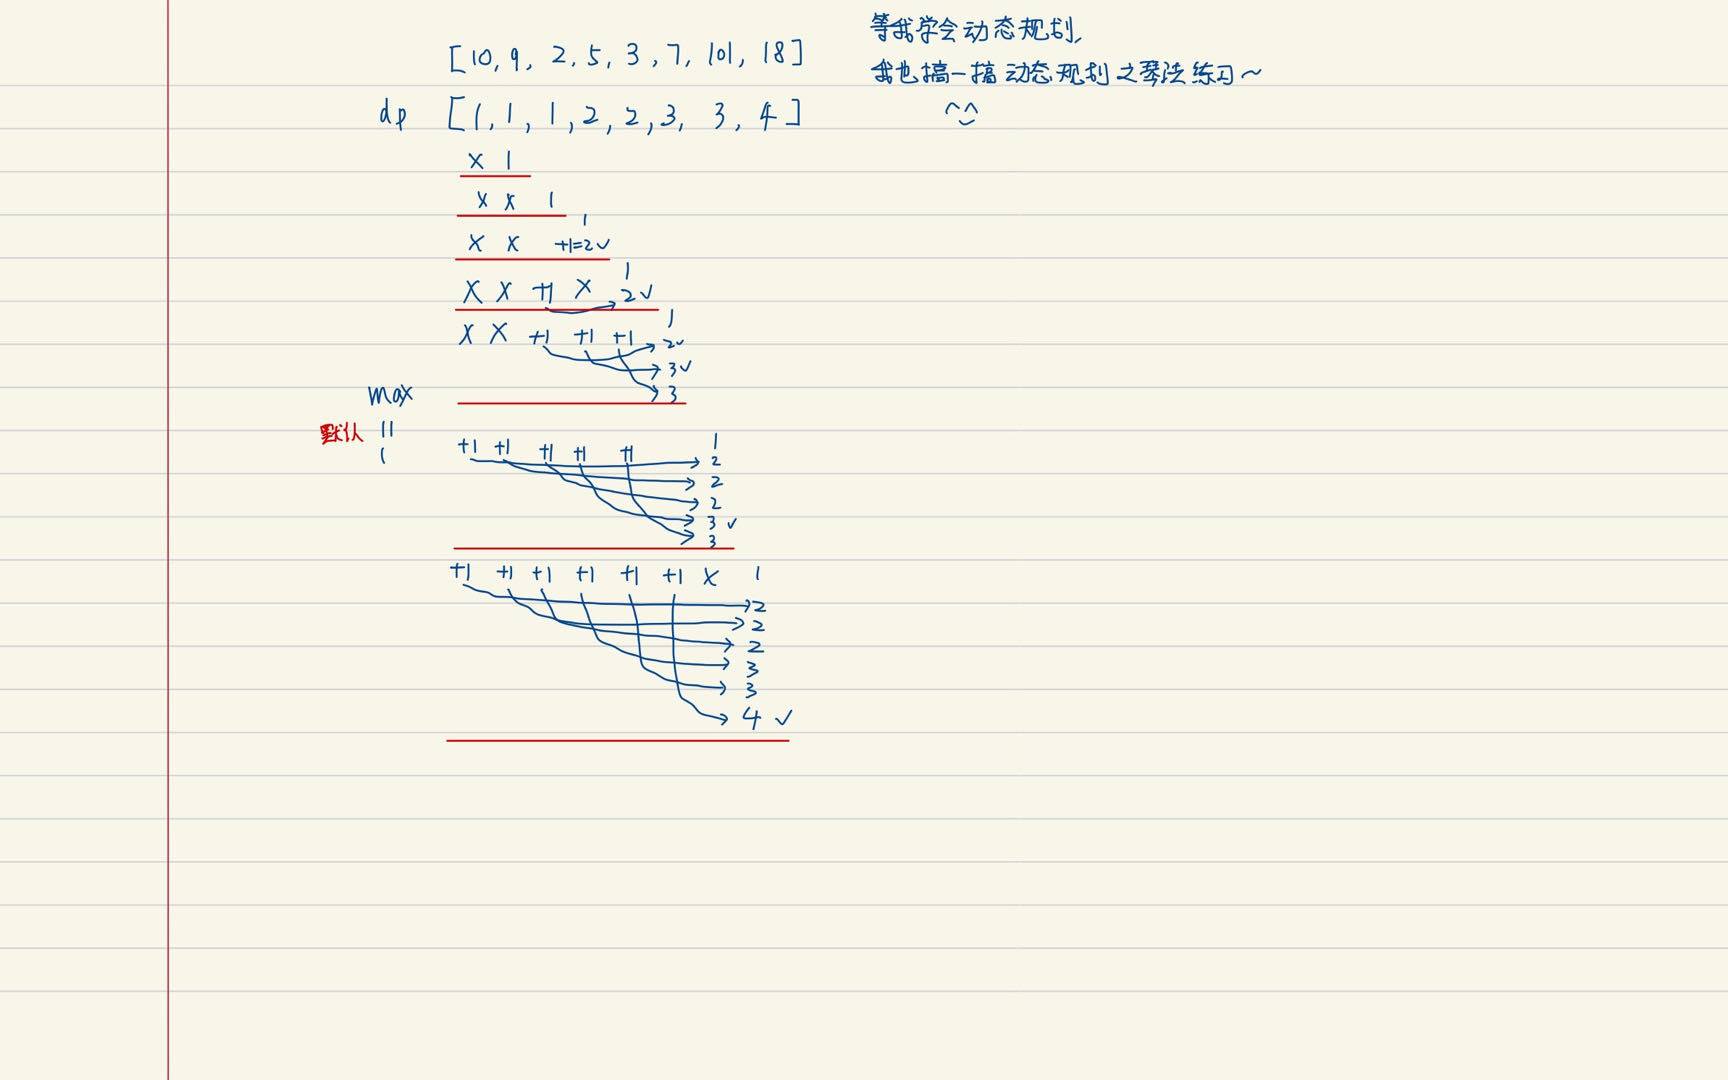 [10, 9, 2, 5, 3, 7, 101, 18]
dp [1, 1, 1, 2, 2, 3, 3, 4]
x 1
x x 1
1
x x +1=2✓
1
x x +1 x 2✓
1
x x +1 +1 +1 2✓
3✓
3
max
默认 ||
1
+1 +1 +1 +1 +1 1
2
2
2
3 ✓
3
+1 +1 +1 +1 +1 +1 x 1
2
2
2
3
3
4 ✓
等我学会动态规划,
我也搞一搞动态规划之琴法练习~
^^